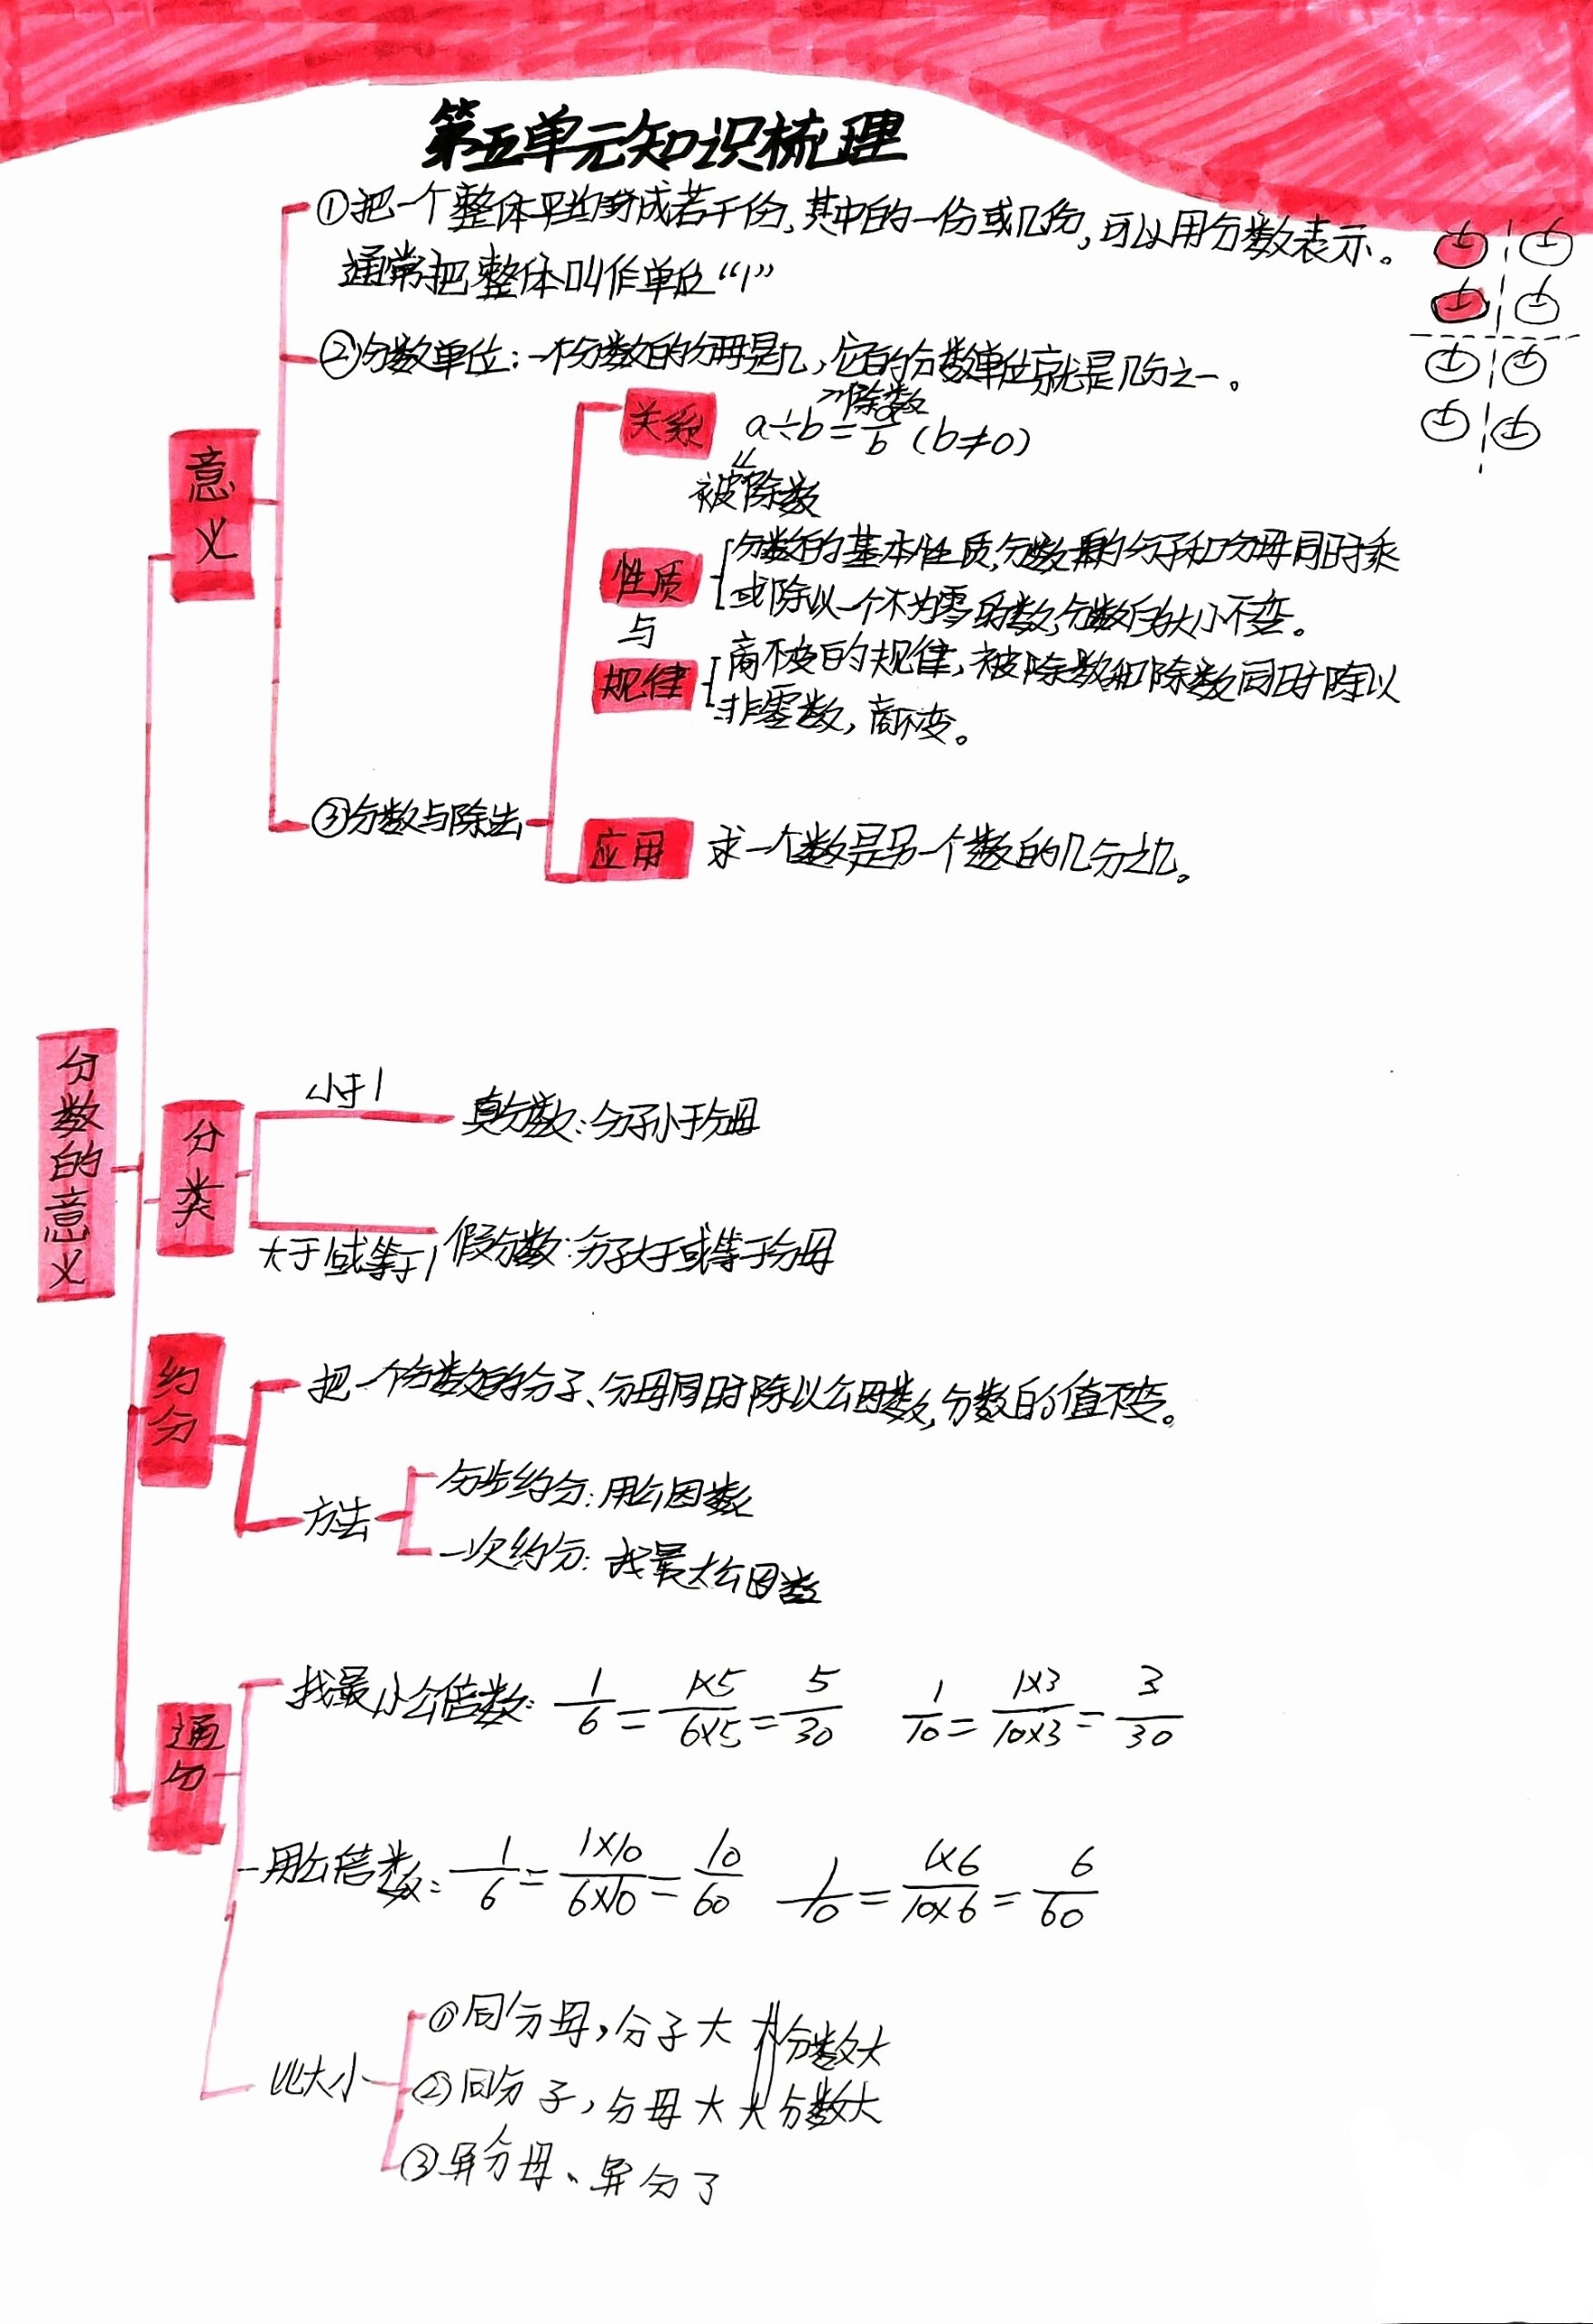 第五单元知识梳理
①把一个整体平均分成若干份,其中的一份或几份,可以用分数表示。
通常把整体叫作单位“1”
②分数单位:一个分数的分母是几,它的分数单位就是几分之一。
意义
关系
除数
a÷b=a/b (b≠0)
被除数
性质
与
规律
分数的基本性质,分数的分子和分母同时乘
或除以一个不为零的数,分数的大小不变。
商不变的规律,被除数和除数同时除以
非零数,商不变。
③分数与除法
应用
求一个数是另一个数的几分之几。
分数的意义
分类
小于1
真分数:分子小于分母
大于1或等于1
假分数:分子大于或等于分母
约分
把一个分数的分子、分母同时除以公因数,分数的值不变。
方法
分步约分:用公因数
一次约分:找最大公因数
通分
找最小公倍数: 1/6=1×5/6×5=5/30 1/10=1×3/10×3=3/30
用公倍数: 1/6=1×10/6×10=10/60 1/10=1×6/10×6=6/60
比大小
①同分母,分子大 分数大
②同分子,分母大 分数大
③异分母、异分子